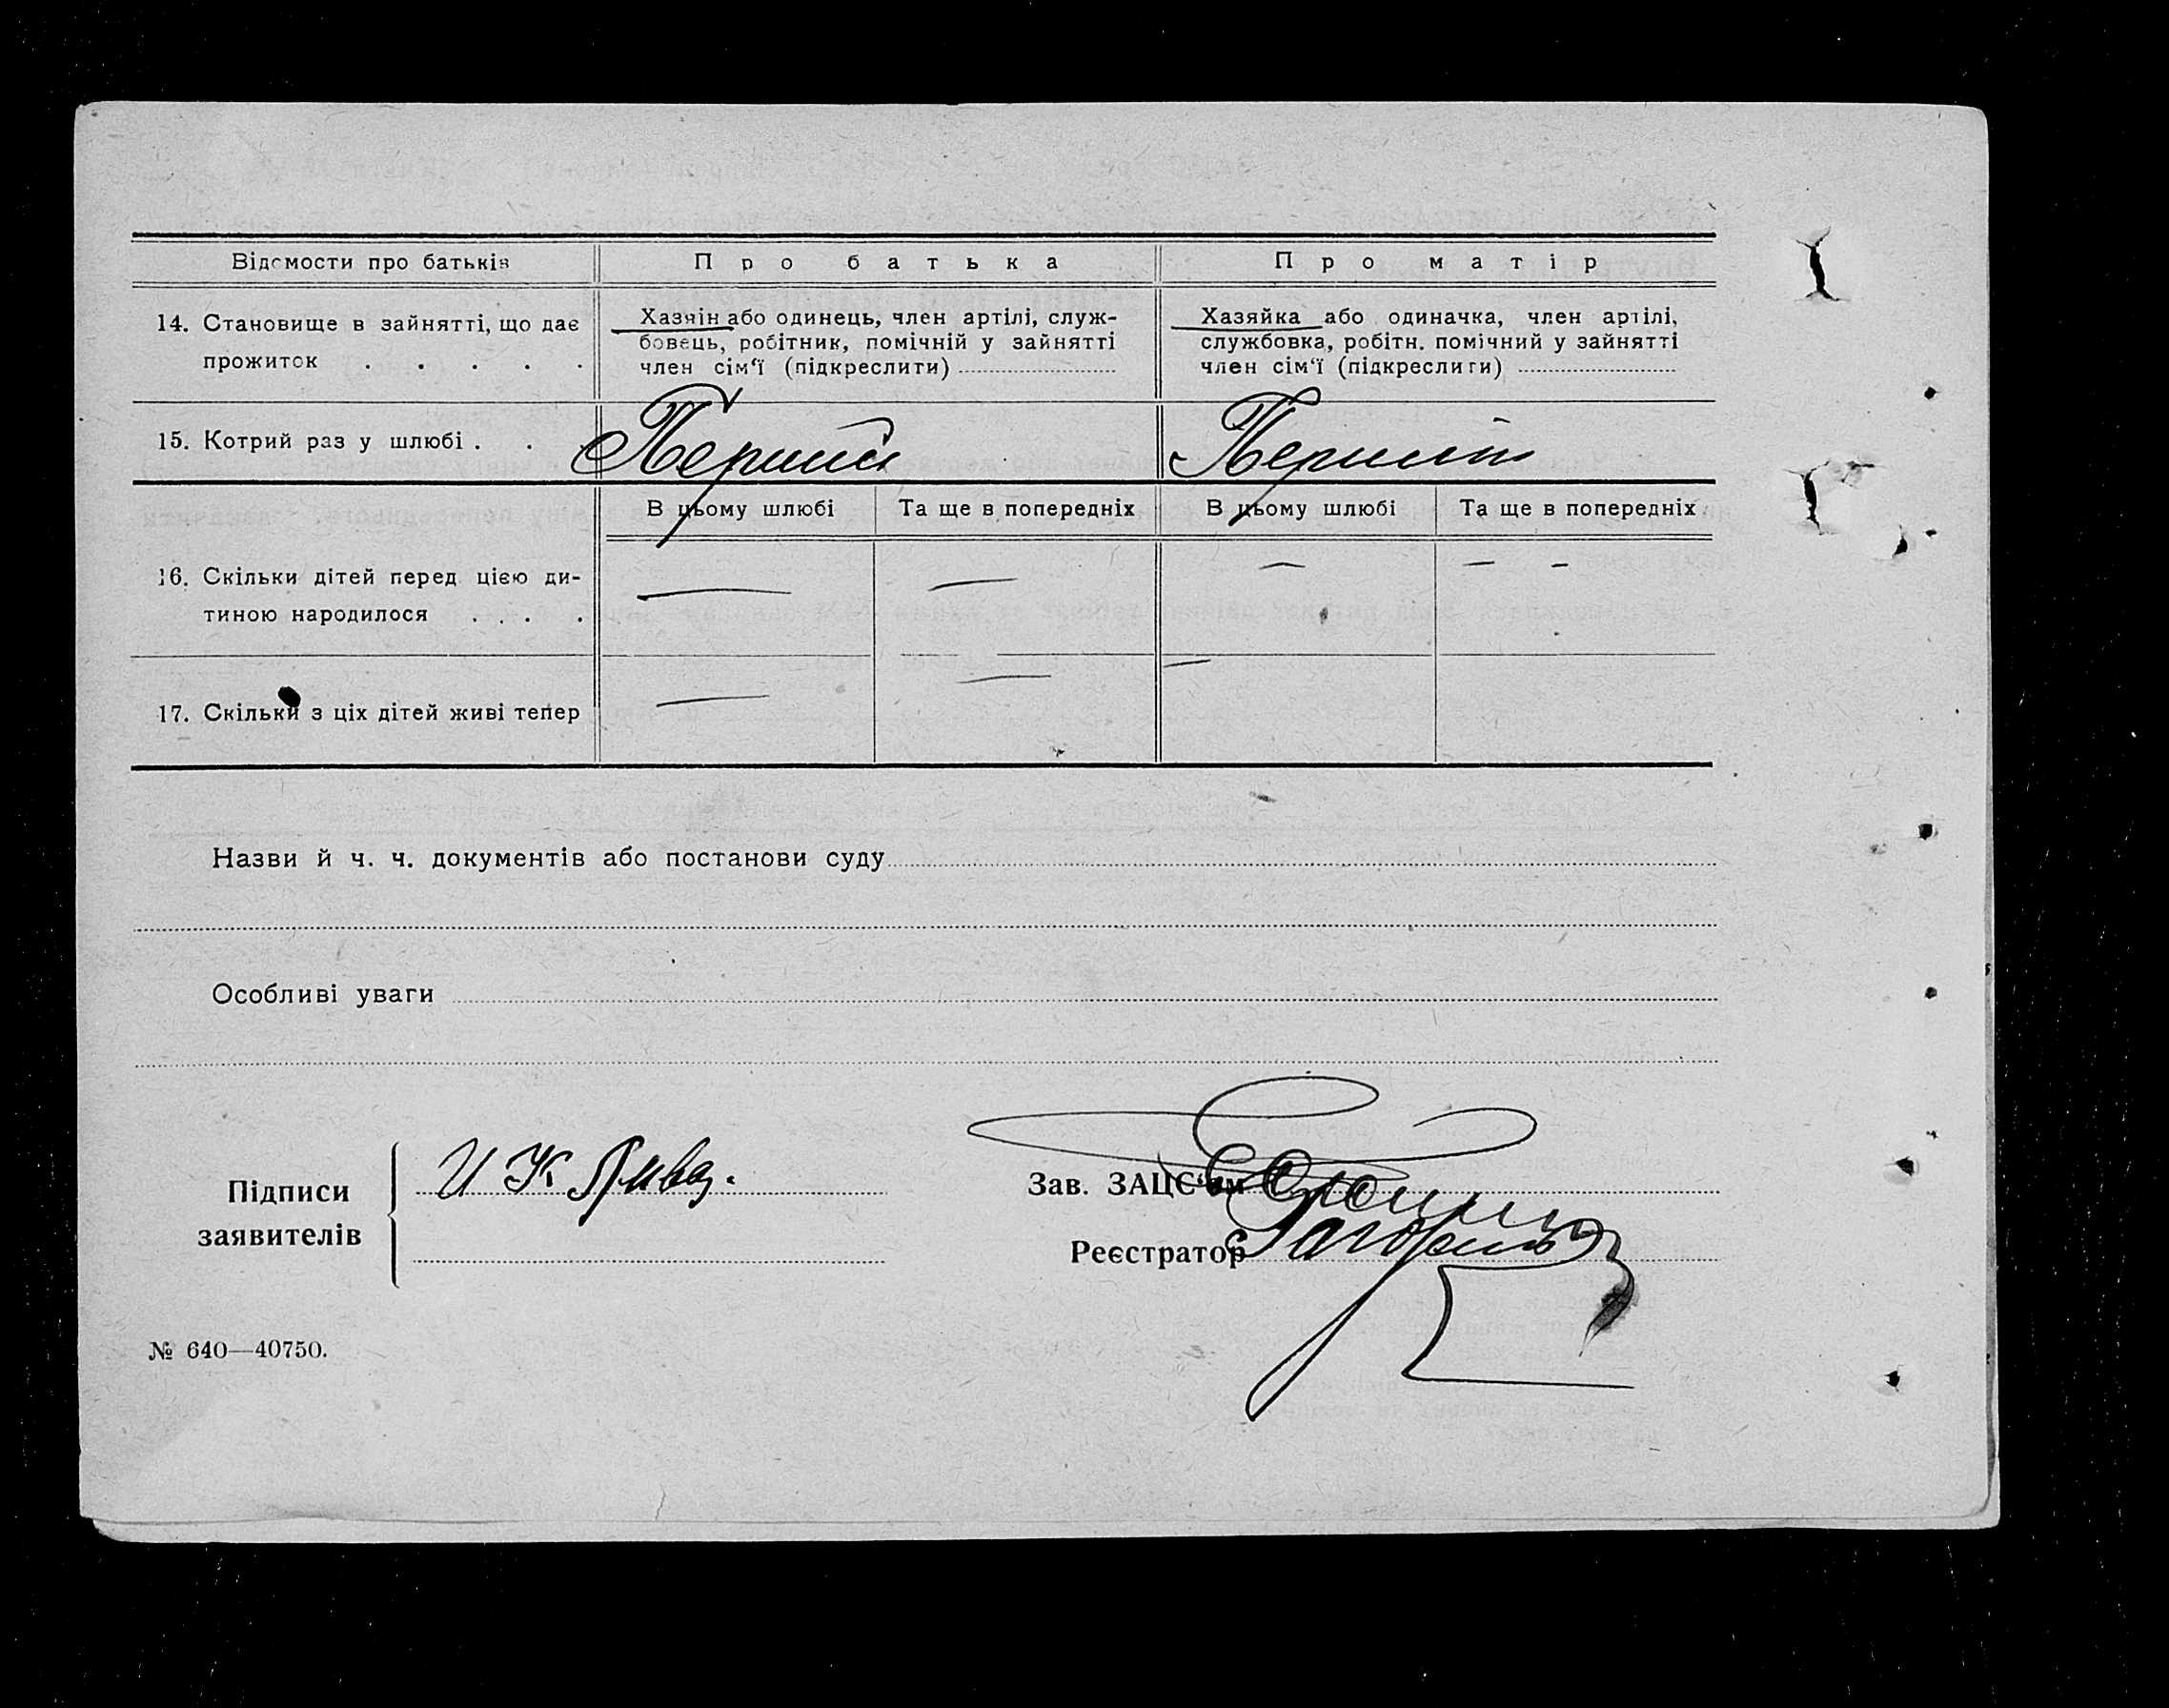 Відомости про батьків
Про батька
Про матір
14. Становище в зайнятті, що дає
прожиток . . . . .
Хазяїн або одинець, член артілі, служ-
бовець, робітник, помічній у зайнятті
член сім‘ї (підкреслити)
Хазяйка або одиначка, член артілі,
службовка, робітн. помічний у зайнятті
член сім‘ї (підкреслити)
15. Котрий раз у шлюбі . .
Перший
Перший
В цьому шлюбі
Та ще в попередніх
В цьому шлюбі
Та ще в попередніх
16. Скільки дітей перед цією ди-
тиною народилося . . . .
— — — — —
17. Скільки з ціх дітей живі тепер
— — —
Назви й ч. ч. документів або постанови суду
Особливі уваги
Підписи
заявителів
И К
Зав. ЗАЦС‘ом
Реєстратор
№ 640—40750.